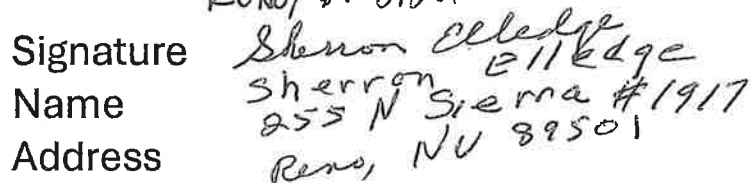 Signature Sherron Elledge
Name Sherron Elledge
255 N Sierra #1917
Address Reno, NV 89501